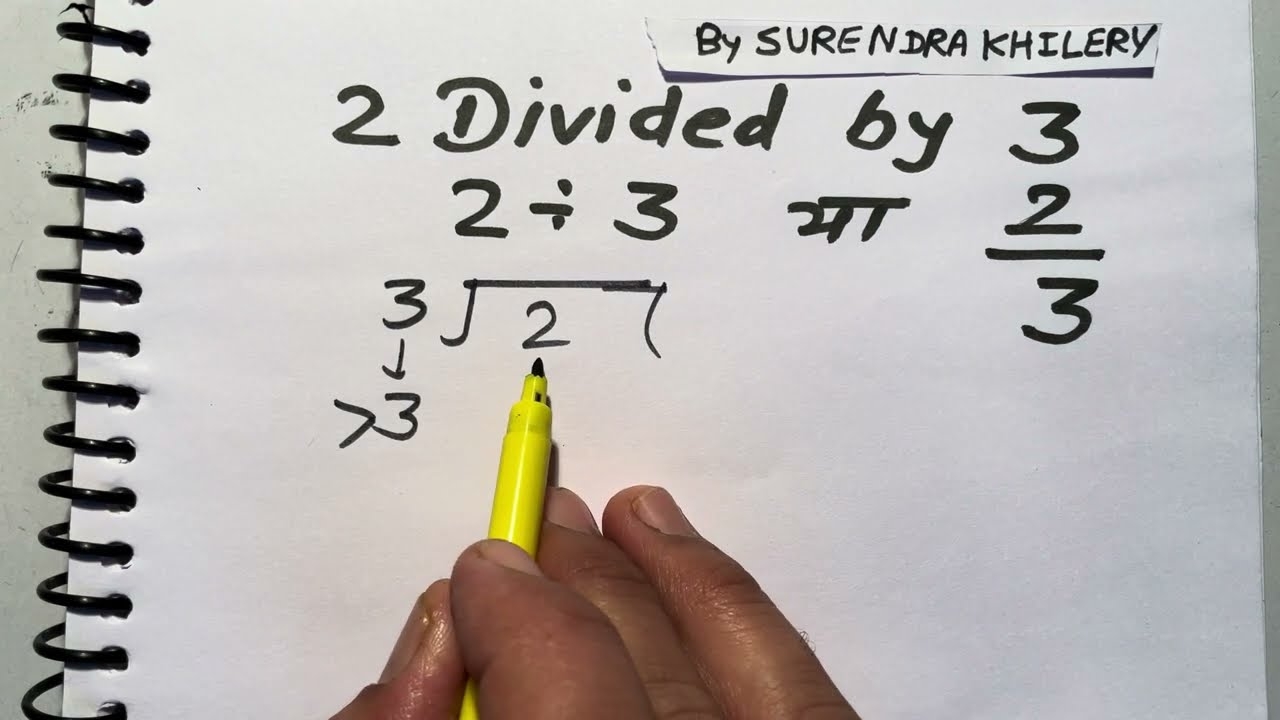 By SURENDRA KHILERY
2 Divided by 3
2 ÷ 3 या 2/3
3 ) 2 (
↓
>3